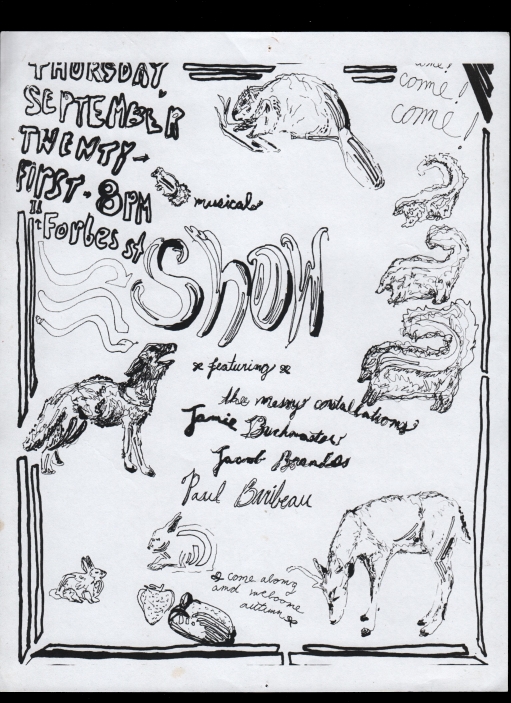 THURSDAY
SEPTEMBER
TWENTY-
FIRST - 8PM
11 Forbes st
come!
come!
come!
musical
ShOW
featuring
the messy constallations
Jamie Buckmaster
Jacob Brandes
Paul Baribeau
come along
and welcome
autumn